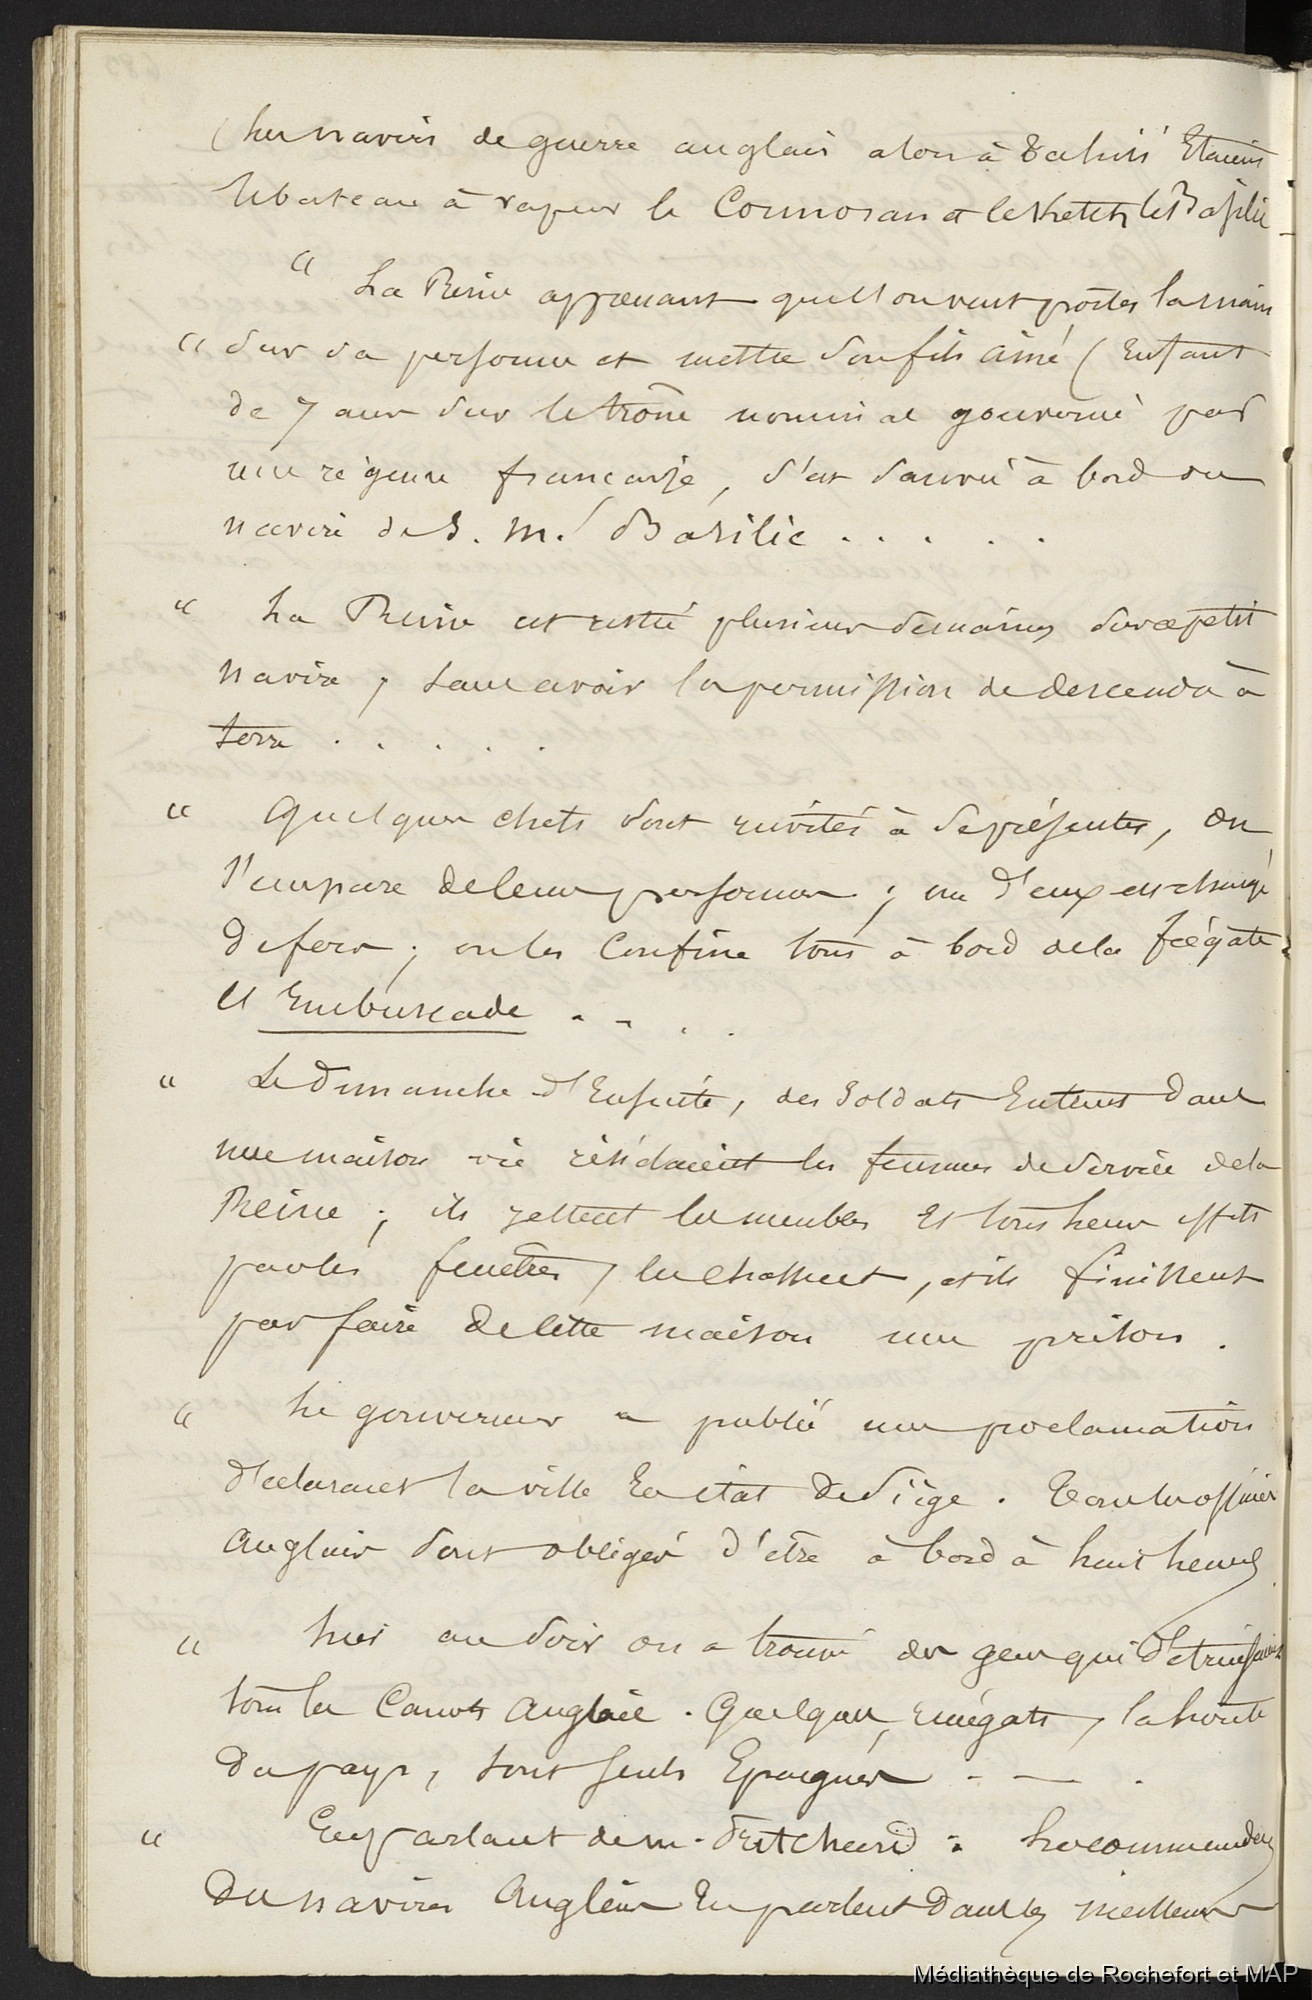 (les navires de guerre anglais alors à Tahiti Etaient
le bateau à vapeur le Cormoran et le ketch le Basilic
" La Reine apprenant que l'on veut porter la main
" sur sa personne et mettre son fils ainé (Enfant
de 7 ans sur le trône nominal gouverné par
une régence française, s'est sauvé à bord du
navire de S. M. Basilic . . . . .
" La Reine est restée plusieurs semaines sur ce petit
navire, sans avoir la permission de descendre à
terre . . . . .
" Quelques chefs sont invités à se présenter, on
s'empare de leurs personnes ; un d'eux est chargé
de fers ; on les Confine tous à bord de la frégate
l'Embuscade . . . .
" Le Dimanche d'Ensuite, des soldats Entrent dans
une maison où résidaient les femmes de service de la
Reine ; ils jettent les meubles et tous leurs effets
par les fenêtres, les chassent, et ils finissent
par faire de cette maison une prison .
" Le gouverneur a publié une proclamation
déclarant la ville En état de siège . Tous les officiers
anglais sont obligés d'être à bord à huit heures
" hier au soir on a trouvé des gens qui détruisaient
tous les Canots Anglais . Quelques renégats, la honte
du pays, sont seuls Epargnés . — .
" En parlant de m. Pritchard : les commandans
des navires Anglais En parlent dans les meilleurs
Médiathèque de Rochefort et MAP